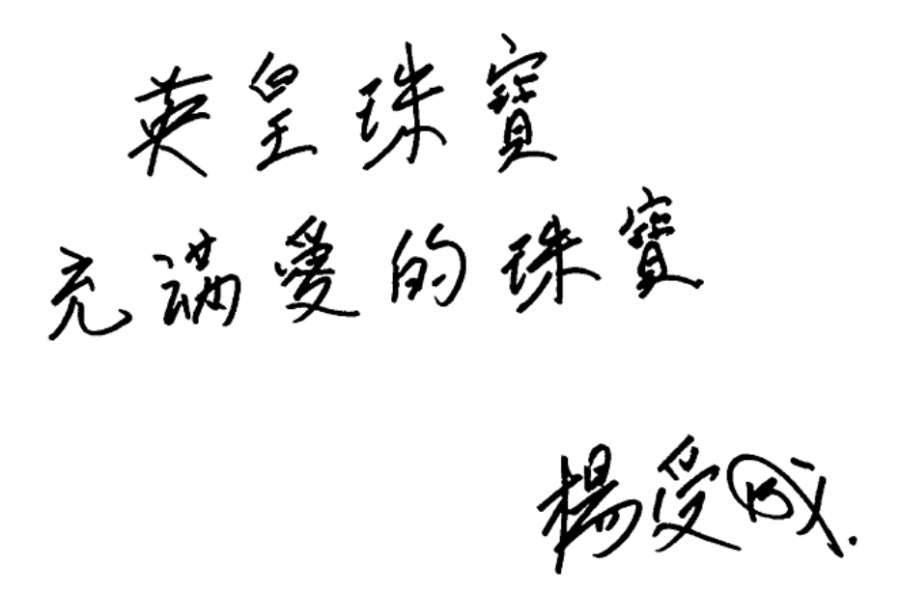 英皇珠寶
充滿愛的珠寶
楊受成